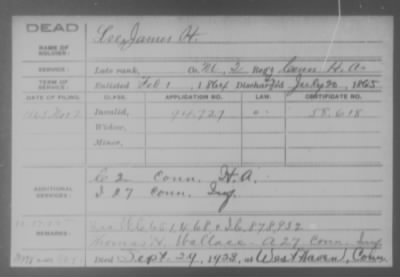 DEAD
NAME OF SOLDIER: Lee, James H.
SERVICE: Late rank, Co. M, 2 Reg't Conn H.A.
TERM OF SERVICE: Enlisted Feb 1, 1864 Discharged July 20, 1865
DATE OF FILING. CLASS. APPLICATION NO. LAW. CERTIFICATE NO.
Invalid, 94,727 58,618
Widow,
Minor,
ADDITIONAL SERVICES: C 2 Conn. H.A.
I 27 Conn. Inf
REMARKS: 878,932
Thomas H. Wallace A 27 Conn. Inf
Died Sept. 24, 1923, at West Haven, Conn